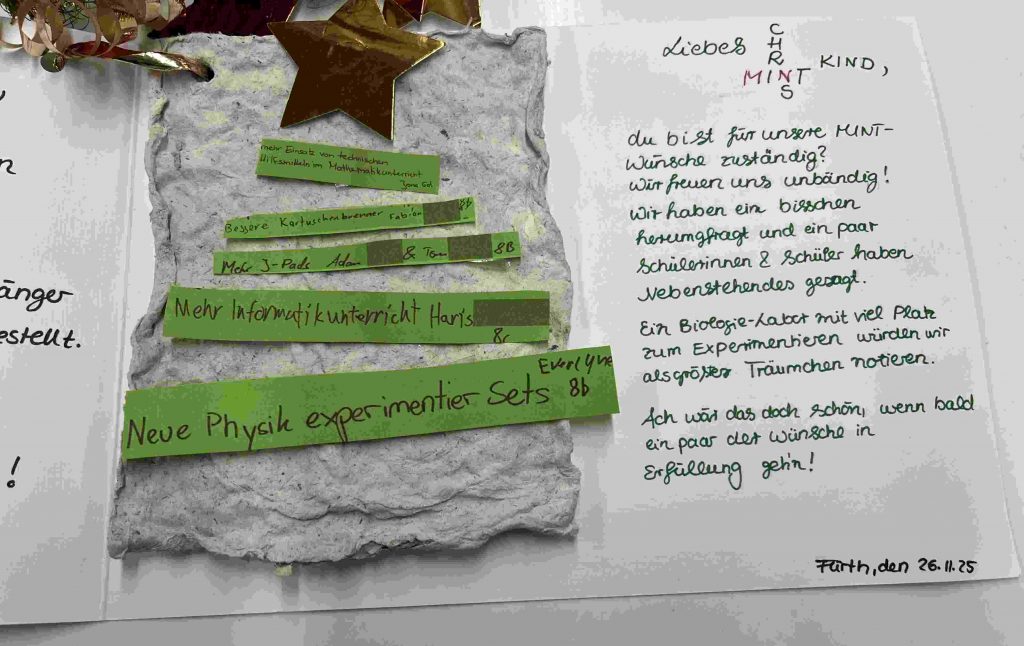 änger
estellt.
!
mehr Einsatz von technischen
Hilfsmitteln im Mathematikunterricht
Bessere Kartuschenbrenner Fabian 8b
Mehr I-Pads Adam & Tom 8B
Mehr Informatikunterricht Haris
8c
Neue Physik experimentier Sets Evelyne
8b
Liebes CHRISTMINT KIND,
du bist für unsere MINT-
Wünsche zuständig?
Wir freuen uns unbändig!
Wir haben ein bisschen
herumgfragt und ein paar
Schülerinnen & Schüler haben
Nebenstehendes gesagt.
Ein Biologie-Labor mit viel Platz
zum Experimentieren würden wir
als größtes Träumchen notieren.
Ach wär das doch schön, wenn bald
ein paar der Wünsche in
Erfüllung geh'n!
Fürth, den 26.11.25